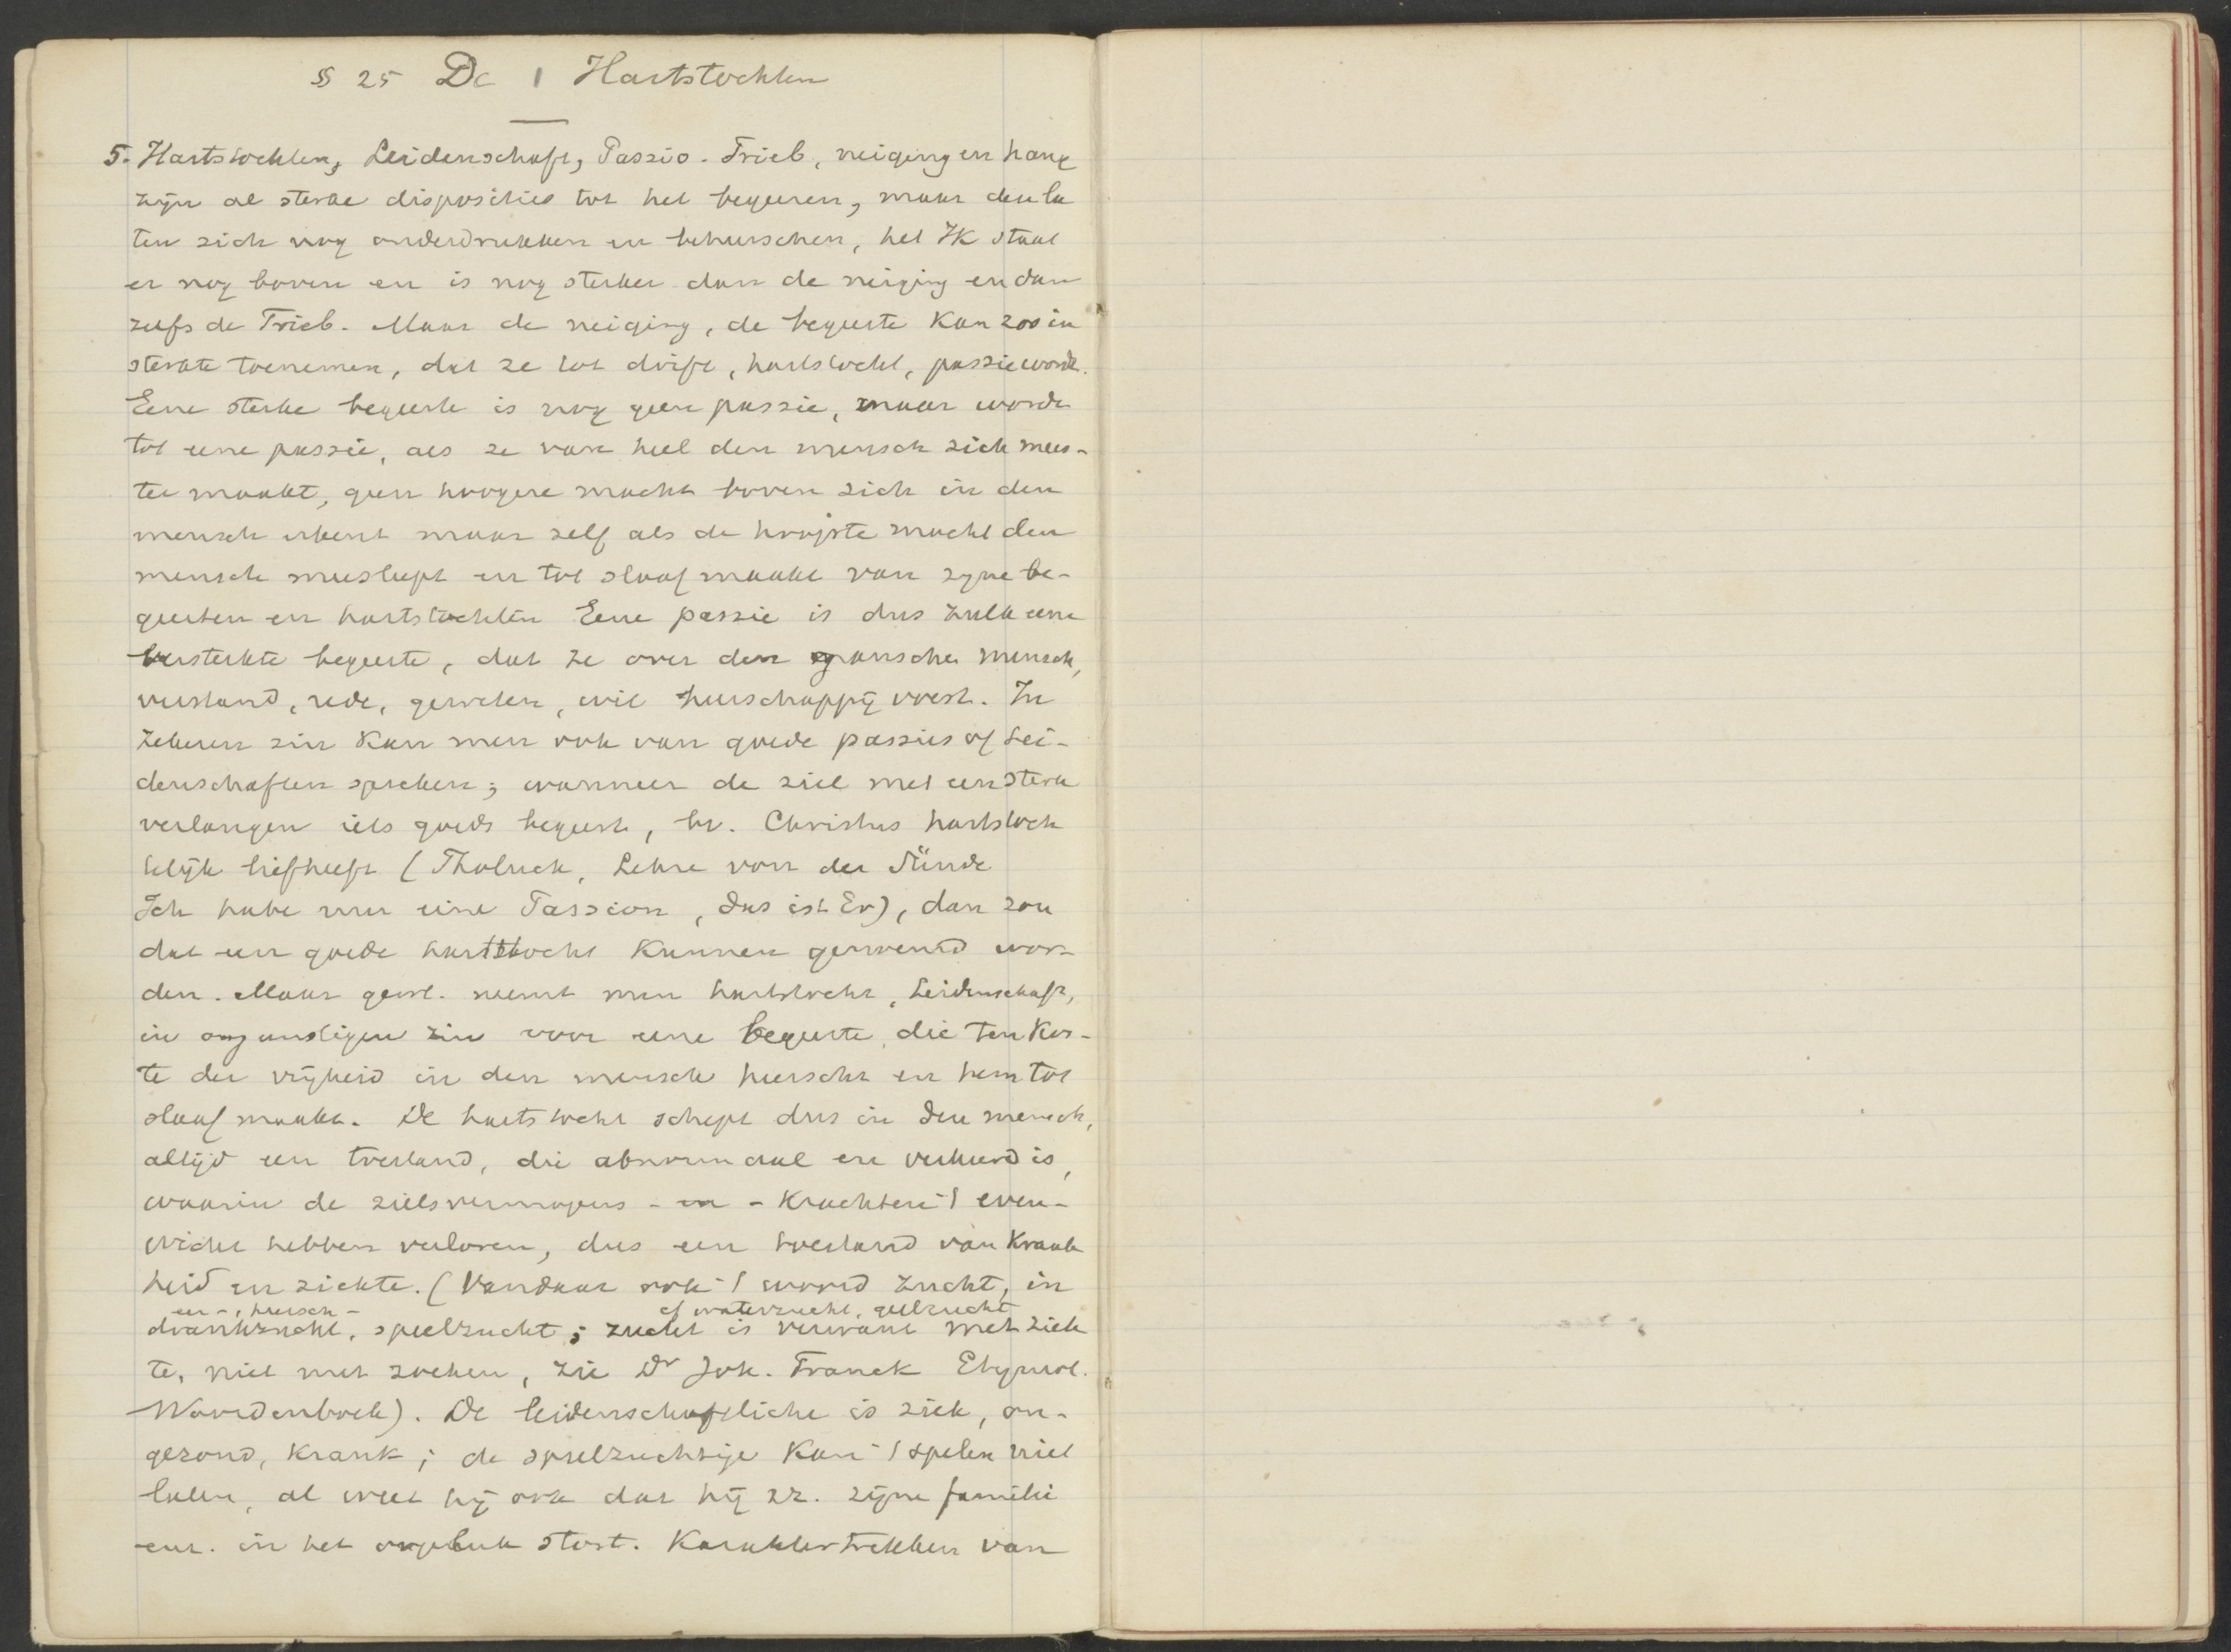 § 25 De Hartstochten
5. Hartstochten, Leidenschaft, Passio. Trieb, neiging en hang
zijn al sterke disposities tot het begeeren, maar deze la
ten zich nog onderdrukken en beheerschen, het Ik staat
er nog boven en is nog sterker dan de neiging en dan
zelfs de Trieb. Maar de neiging, de begeerte kan zoo in
sterkte toenemen, dat ze tot drift, hartstocht, passie wordt.
Eene sterke begeerte is nog geen passie, maar wordt
tot eene passie, als ze van heel den mensch zich mees-
ter maakt, geen hoogere macht boven zich in den
mensch erkent maar zelf als de hoogste macht den
mensch meesleept en tot slaaf maakt van zyne be-
geerten en hartstochten Eene passie is dus zulk eene
versterkte begeerte, dat ze over den ganschen mensch,
verstand, rede, geweten, wil heerschappij voert. In
zekeren zin kan men ook van goede passies of Lei-
denschaften spreken; wanneer de ziel met een sterk
verlangen iets goeds begeert, bv. Christus hartstoch
telijk liefheeft (Tholuck, Lehre von der Sünde
Ich habe nur eine Passion, das ist Er), dan zou
dat een goede hartstocht kunnen genoemd wor-
den. Maar gew. neemt men hartstocht, Leidenschaft,
in ongunstigen zin voor eene begeerte, die ten kos-
te der vrijheid in den mensch heerscht en hem tot
slaaf maakt. De hartstocht schept dus in den mensch,
altijd een toestand, die abnormaal en verkeerd is,
waarin de zielsvermogens - en - krachten 't even-
wicht hebben verloren, dus een toestand van krank
heid en ziekte. (Vandaar ook 't woord zucht, in
eer-, heersch- cf waterzucht, geelzucht
drankzucht, speelzucht; zucht is verwant met ziek
te, niet met zoeken, zie Dr Joh. Franck Etymol.
Woordenboek). De leidenschaftliche is ziek, on-
gezond, krank; de speelzuchtige kan 't spelen niet
laten, al weet hij ook dat hij zz. zijne familie
enz. in het ongeluk stort. Karaktertrekken van